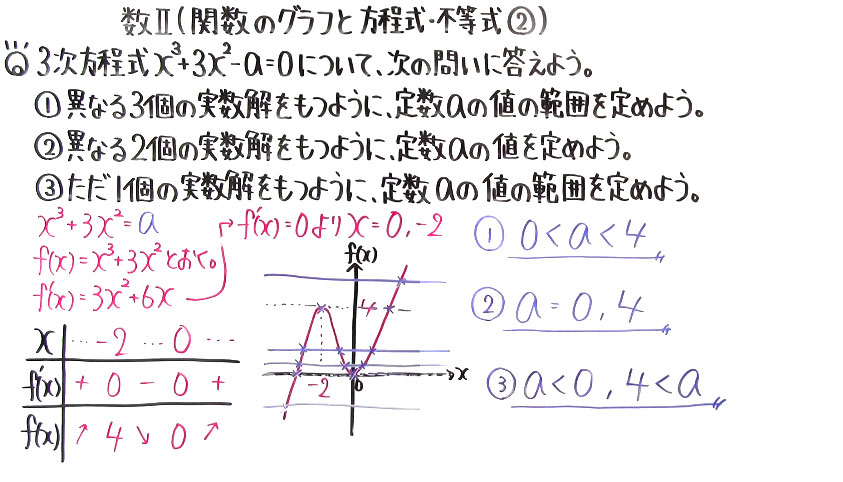 数Ⅱ(関数のグラフと方程式・不等式②)
3次方程式x³+3x²-a=0について、次の問いに答えよう。
①異なる3個の実数解をもつように、定数aの値の範囲を定めよう。
②異なる2個の実数解をもつように、定数aの値を定めよう。
③ただ1個の実数解をもつように、定数aの値の範囲を定めよう。
x³+3x²=a
f(x)=x³+3x²とおく。
f'(x)=3x²+6x
f'(x)=0よりx=0,-2
x … -2 … 0 …
f'(x) + 0 - 0 +
f(x) ↗ 4 ↘ 0 ↗
f(x)
4
-2 0 x
① 0<a<4
② a=0,4
③ a<0,4<a